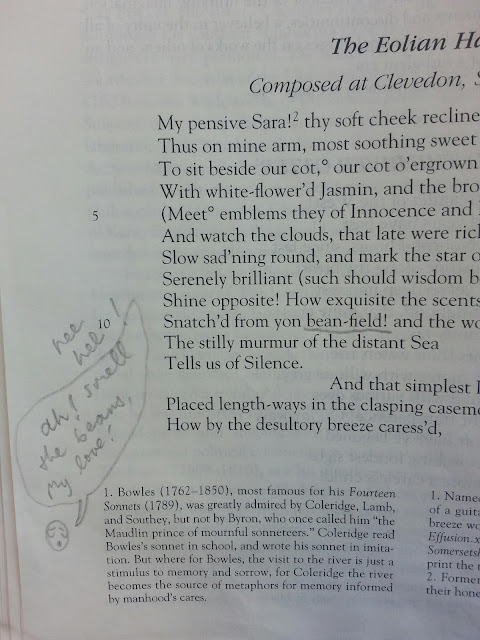 The Eolian Ha
Composed at Clevedon, S
My pensive Sara!² thy soft cheek recline
Thus on mine arm, most soothing sweet
To sit beside our cot,° our cot o'ergrown
With white-flower'd Jasmin, and the bro
5 (Meet° emblems they of Innocence and
And watch the clouds, that late were rich
Slow sad'ning round, and mark the star o
Serenely brilliant (such should wisdom b
Shine opposite! How exquisite the scents
10 Snatch'd from yon bean-field! and the wo
The stilly murmur of the distant Sea
Tells us of Silence.
And that simplest
Placed length-ways in the clasping casem
How by the desultory breeze caress'd,
hee
hee!
ah! smell
the beans,
my love!
1. Bowles (1762–1850), most famous for his Fourteen
Sonnets (1789), was greatly admired by Coleridge, Lamb,
and Southey, but not by Byron, who once called him "the
Maudlin prince of mournful sonneteers." Coleridge read
Bowles's sonnet in school, and wrote his sonnet in imita-
tion. But where for Bowles, the visit to the river is just a
stimulus to memory and sorrow, for Coleridge the river
becomes the source of metaphors for memory informed
by manhood's cares.
1. Name
of a guita
breeze wo
Effusion.x
Somersets
print the
2. Former
their hone